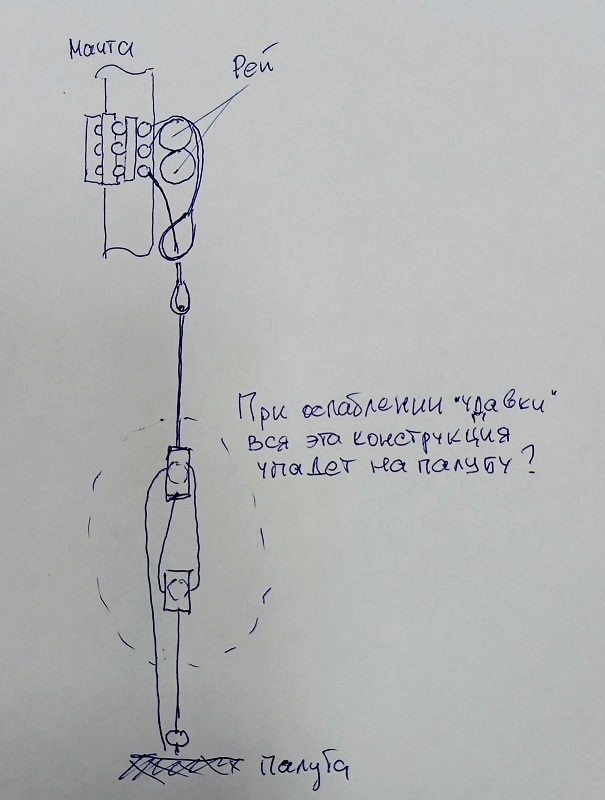 Мачта
Рей
При ослаблении "удавки"
вся эта конструкция
упадет на палубу?
Палуба